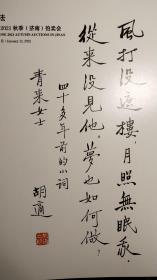 法
2021 秋季（济南）拍卖会
2021 AUTUMN AUCTIONS IN JINAN
風打没遮樓，月照無眠我。
從来没見他，夢也如何做？
四十多年前的小詞
胡適
青来女士